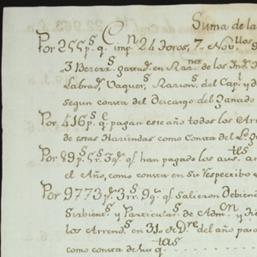 Suma de la
Por 255p.s q. imp.n 24 Toros, 7. Nov.llos
3 Becerr.s
Labrad.s Vaquer.s Racion.s del Cap.l y d
segun consta del Descargo del Ganado
Por 436p.s q. pagan este año todos los Arre
de estas Haziendas como consta del Leg
Por 89p.s 5r.s 3g.s q.e han pagado los
el Año, como consta en su respectibo
Por 9773p.s 3r.s 9g.s q.e salieron Debien
Sirbien.s y Particular.s de Adm.on y
los Arrend.s en 31 de D.re del año pa
como consta de